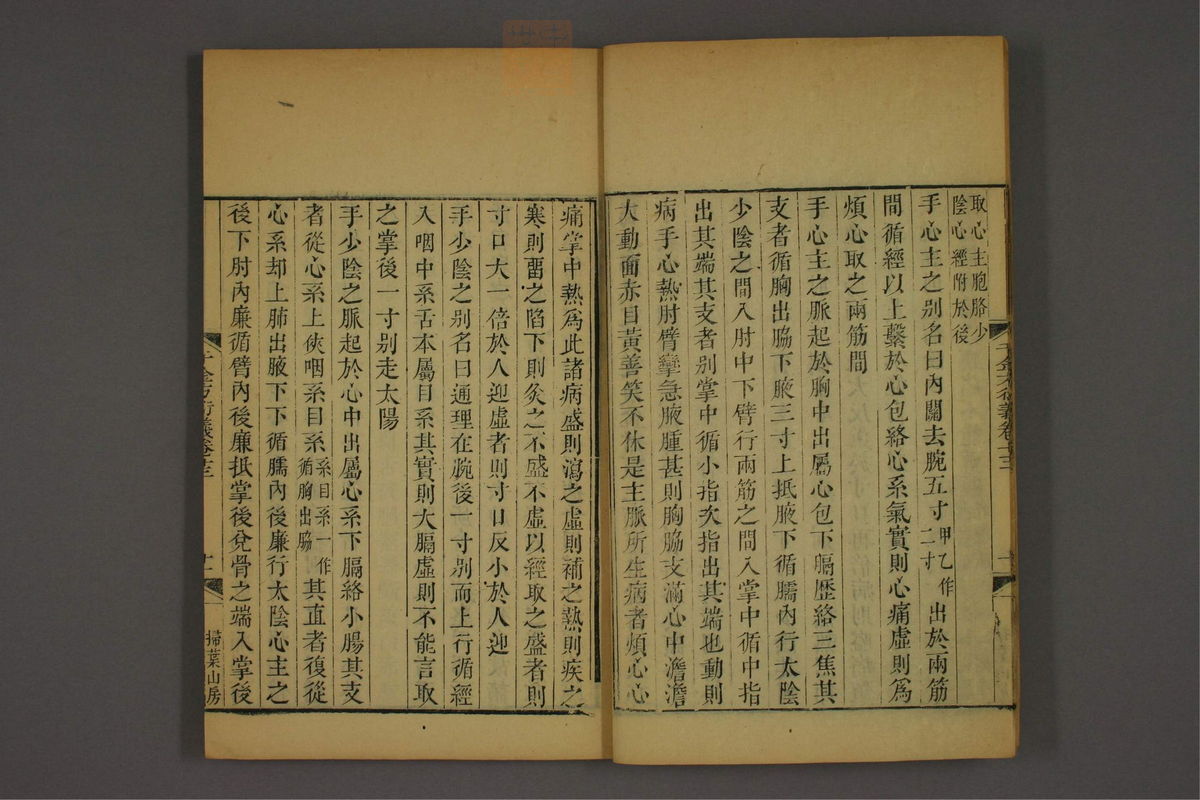 取心主胞胳少
陰心經附於後
手心主之别名曰内關去腕五寸甲乙作二寸出於兩筋
間循經以上繫於心包絡心系氣實則心痛虛則爲
煩心取之兩筋間
手心主之脈起於胸中出屬心包下膈歷絡三焦其
支者循胸出脇下腋三寸上抵腋下循臑内行太陰
少陰之間入肘中下臂行兩筋之間入掌中循中指
出其端其支者别掌中循小指次指出其端也動則
病手心熱肘臂攣急腋腫甚則胸脇支滿心中澹澹
大動面赤目黃善笑不休是主脈所生病者煩心心
千金方衍義卷十三
痛掌中熱爲此諸病盛則瀉之虛則補之熱則疾之
寒則畱之陷下則灸之不盛不虛以經取之盛者則
寸口大一倍於人迎虛者則寸口反小於人迎
手少陰之别名曰通理在腕後一寸别而上行循經
入咽中系舌本屬目系其實則大膈虛則不能言取
之掌後一寸别走太陽
手少陰之脈起於心中出屬心系下膈絡小腸其支
者從心系上俠咽系目系系目系一作循胸出脇其直者復從
心系却上肺出腋下下循臑内後廉行太陰心主之
後下肘内廉循臂内後廉抵掌後兌骨之端入掌後
千金方衍義卷十三
十一
掃葉山房